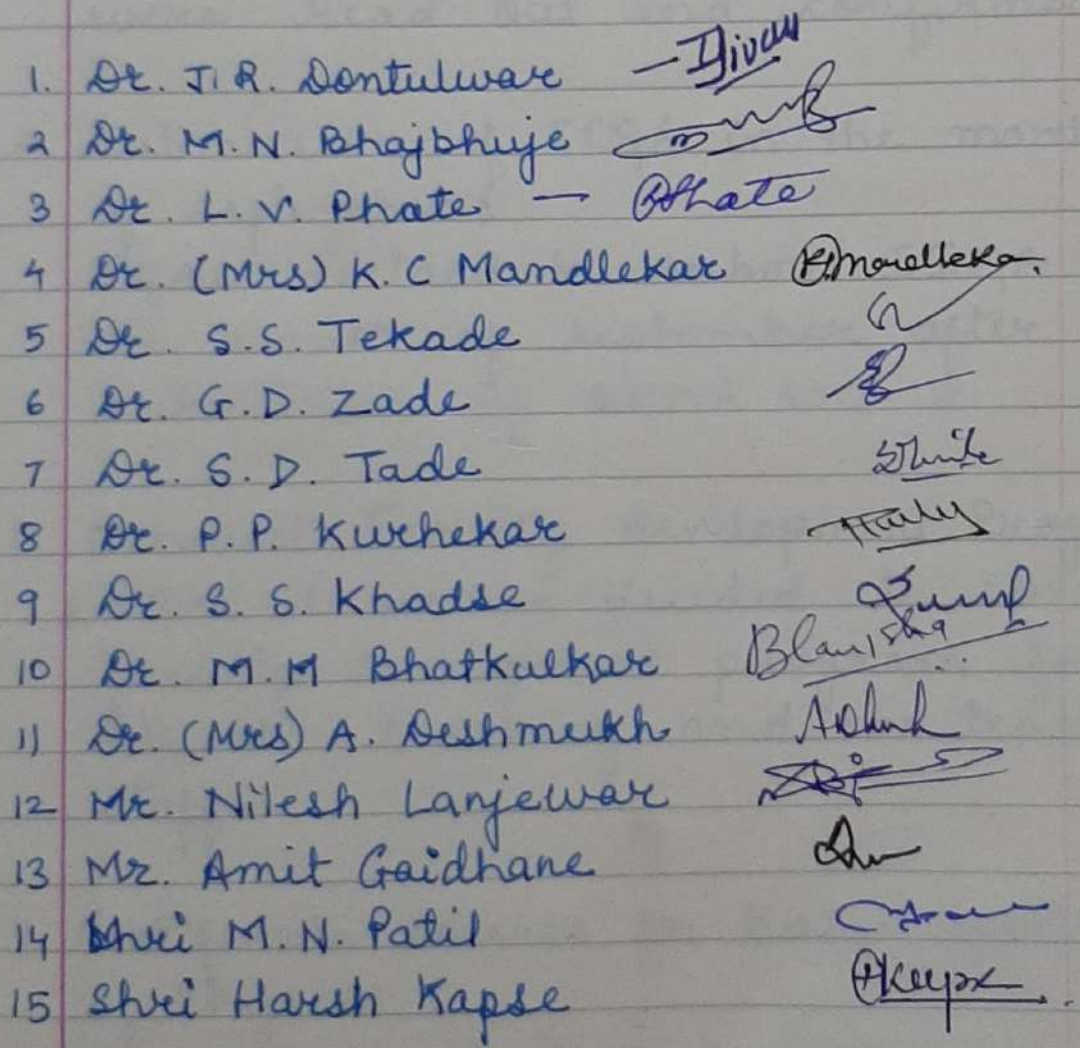 1. Dr. J.R. Dontulwar
2 Dr. M.N. Bhajbhuje
3 Dr. L. V. Phate — Phate
4 Dr. (Mrs) K. C Mandlekar
5 Dr. S.S. Tekade
6 Dr. G.D. Zade
7 Dr. S. D. Tade
8 Dr. P.P. Kurhekar
9 Dr. S. S. Khadse
10 Dr. M. M Bhatkulkar
11 Dr. (Mrs) A. Deshmukh
12 Mr. Nilesh Lanjewar
13 Mr. Amit Gaidhane
14 Shri M. N. Patil
15 Shri Harsh Kapse